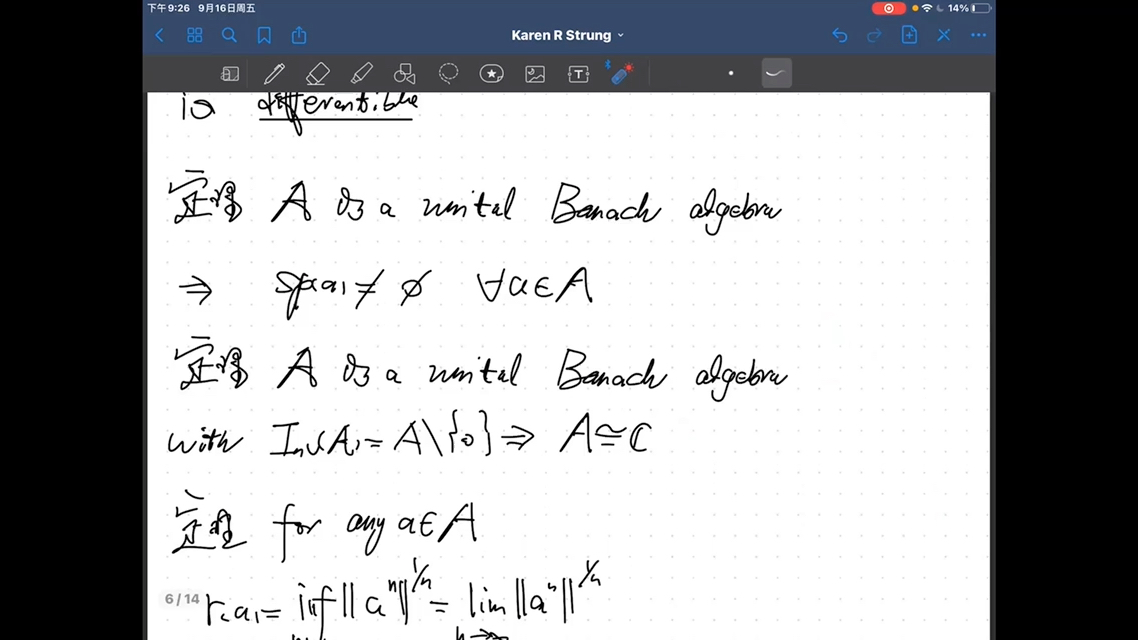 下午9:26 9月16日周五 14%
Karen R Strung
is differentible
定理 A is a unital Banach algebra
⇒ sp(a) ≠ ∅ ∀a∈A
定理 A is a unital Banach algebra
with Inv(A) = A\{0} ⇒ A≅ℂ
定理 for any a∈A
6/14 r(a) = inf ||aⁿ||^{1/n} = lim ||aⁿ||^{1/n}
n→∞